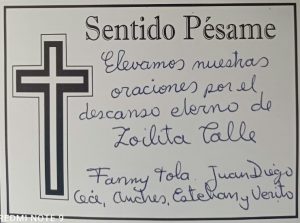 Sentido Pésame
Elevamos nuestras
oraciones por el
descanso eterno de
Zoilita Calle
Fanny Tola, Juan Diego
Ceci, Andres, Esteban y Verito
REDMI NOTE 9